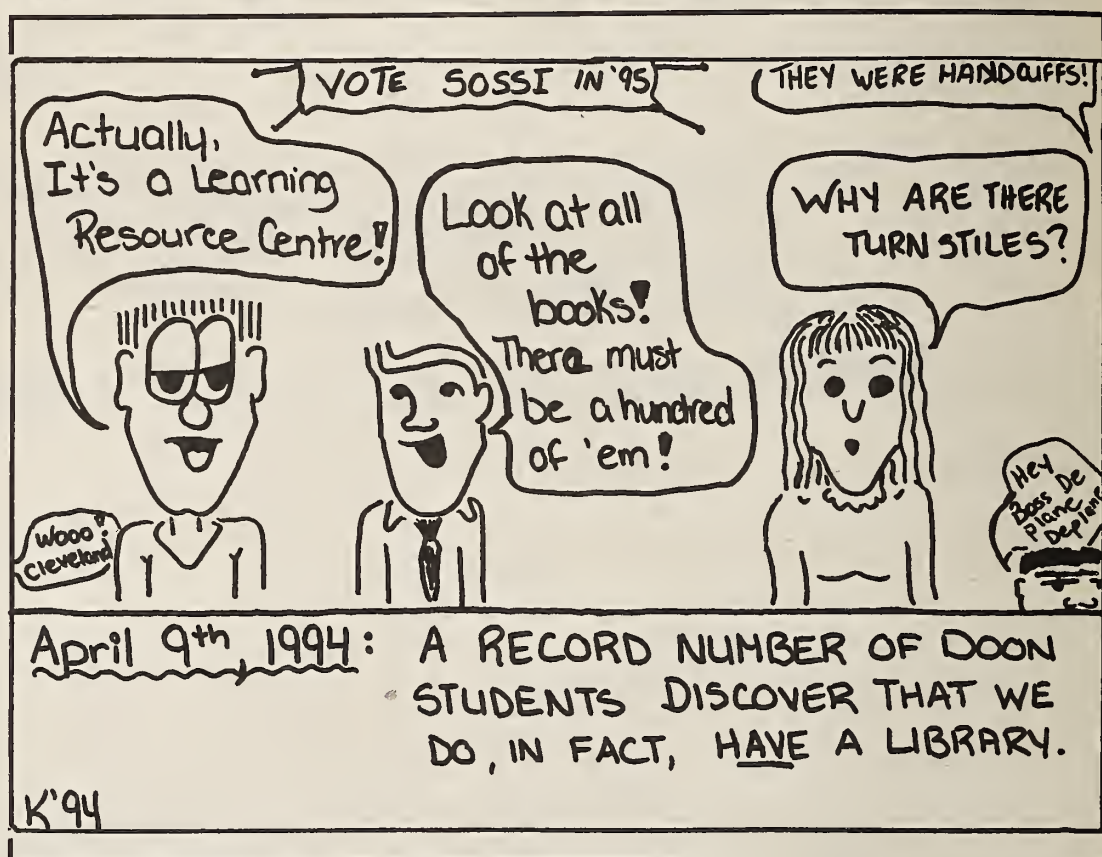 VOTE SOSSI IN '95
THEY WERE HANDCUFFS!
Actually,
It's a Learning
Resource Centre!
Look at all
of the
books!
There must
be a hundred
of 'em!
WHY ARE THERE
TURN STILES?
Wooo!
Cleveland
Hey
Boss De
Plane
Deplane
April 9th, 1994:
A RECORD NUMBER OF DOON
STUDENTS DISCOVER THAT WE
DO, IN FACT, HAVE A LIBRARY.
K'94